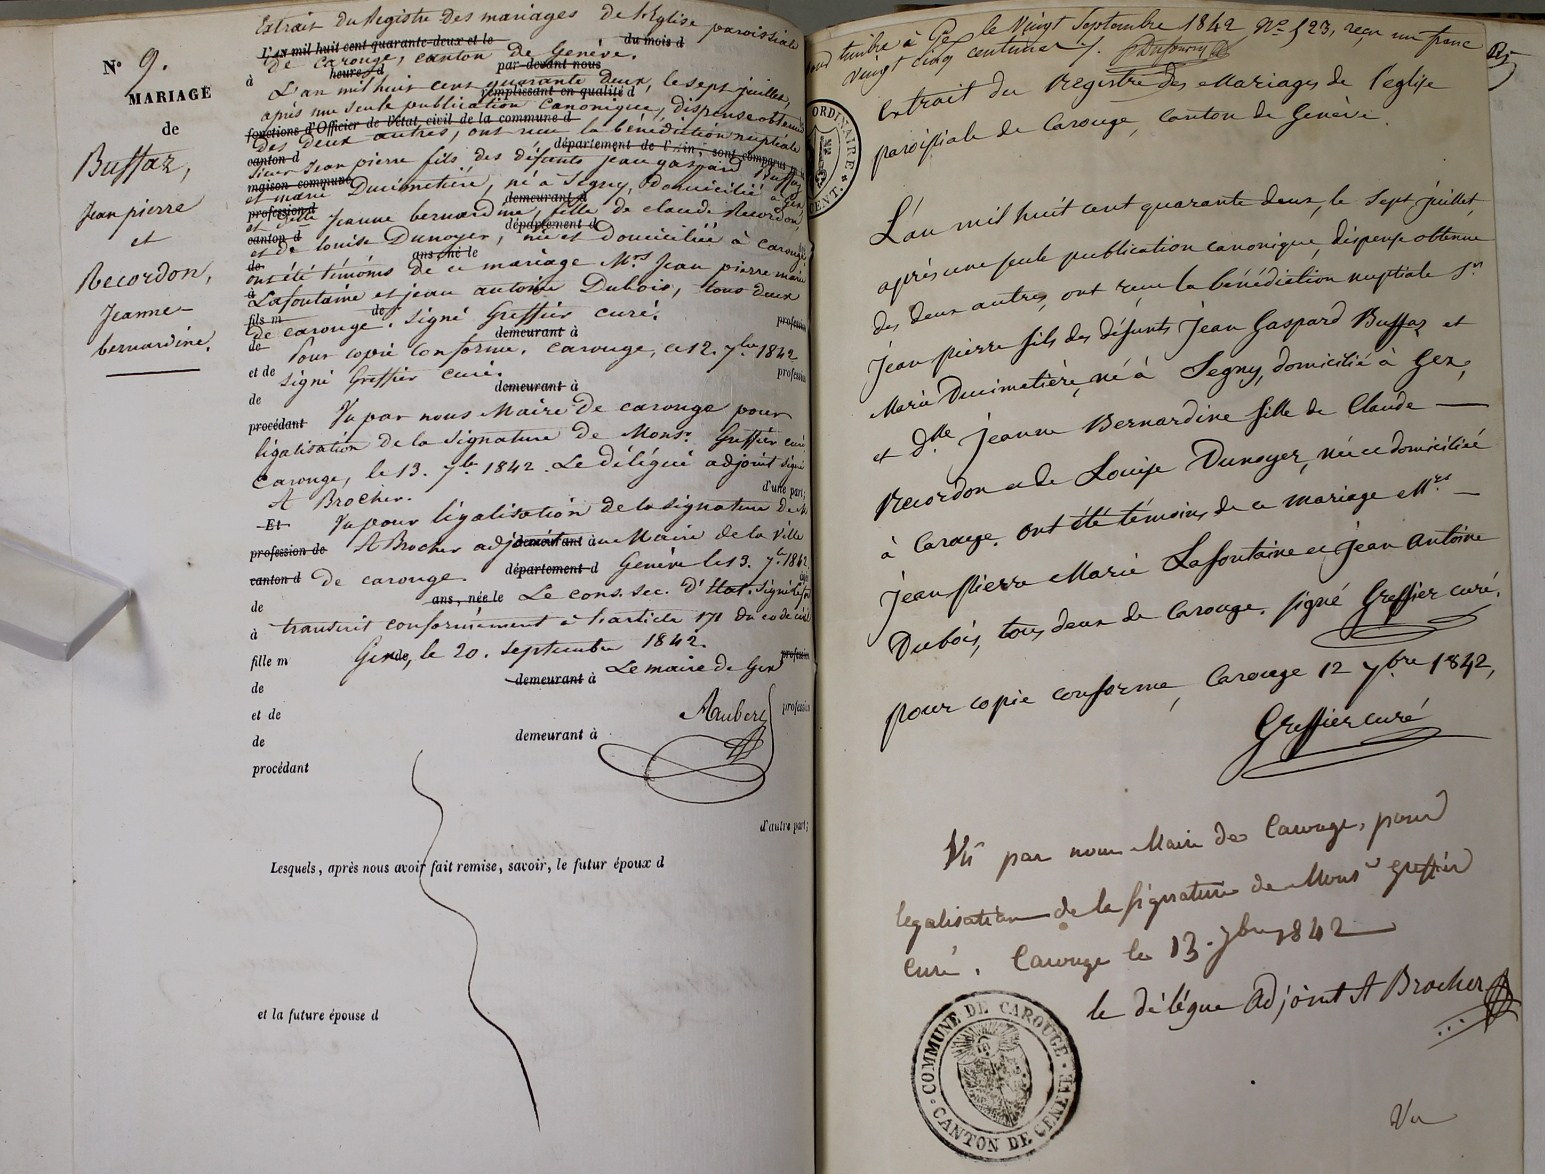 N.º 9.
MARIAGE
de
Buffaz,
Jean pierre
et
Recordon,
Jeanne-
bernardine.
Extrait du Registre des mariages de l'Eglise paroissiale
L'AN mil huit cent quarante-deux et le du mois d
de carouge, canton de Genève.
à heure d par-devant nous
L'an mil huit cent quarante deux, le sept juillet,
remplissant en qualité d
après une seule publication canonique, dispense obtenue
fonctions d'Officier de l'état civil de la commune d
des deux autres, ont reçu la bénédiction nuptiale
canton d département de l'Ain, sont comparus
sieur Jean pierre fils des défunts jean gaspard Buffaz
maison commune
et marie Ducimetière, né à Segny, domicilié à Gex,
profession d demeurant à
et dlle Jeanne bernardine, fille de claude Recordon,
canton d département d
et de louise Dunoyer, née et domiciliée à carouge
de ans, né le
ont été témoins de ce mariage Mrs Jean pierre marie
à
Lafontaine et jean antoine Dubois, tous deux
fils m de profession
de carouge. signé Greffier curé.
de demeurant à
Pour copie conforme, carouge, ce 12. 7bre 1842
et de profession
signé Greffier curé.
de demeurant à
procédant Vu par nous Maire de carouge pour
légalisation de la signature de Monsr Greffier curé
Carouge, le 13. 7bre 1842. Le délégué adjoint signé
d'une part;
A Brocher.
Et Vu pour légalisation de la signature de M
profession de A Brocher adjoint demeurant à au Maire de la Ville
canton d de carouge. département d Genève le 13. 7bre 1842
de ans, née le Le cons. sec. d'Etat. signé
à transcrit conformément à l'article 171 du code civil
fille m Gex, le 20. septembre 1842. profession
de demeurant à Le maire de Gex
et de Aubert profession
de demeurant à
procédant
d'autre part;
Lesquels, après nous avoir fait remise, savoir, le futur époux d
et la future épouse d
timbre à Gex le Vingt Septembre 1842 No 523, reçu un franc
vingt cinq centimes
ORDINAIRE
CENT.
Extrait du Registre des Mariages de l'eglise
paroissiale de Carouge, Canton de Genève.
L'an mil huit cent quarante deux, le sept juillet,
après une seule publication canonique, dispense obtenue
des deux autres, ont reçu la bénédiction nuptiale Sr
Jean pierre fils des défunts Jean Gaspard Buffaz et
Marie Ducimetière, né à Segny, domicilié à Gex,
et dlle Jeanne Bernardine fille de Claude
Recordon et de Louise Dunoyer, née et domiciliée
à Carouge. ont été témoins de ce mariage Mrs
Jean Pierre Marie Lafontaine et Jean Antoine
Dubois, tous deux de Carouge. signé Greffier curé.
pour copie conforme, Carouge 12 7bre 1842,
Greffier curé
Vû par nous Maire de Carouge, pour
legalisation de la signature de Monsr Greffier
Curé. Carouge le 13. 7bre 1842
le délégué Adjoint A Brocher
COMMUNE DE CAROUGE
CANTON DE GENEVE
Vu